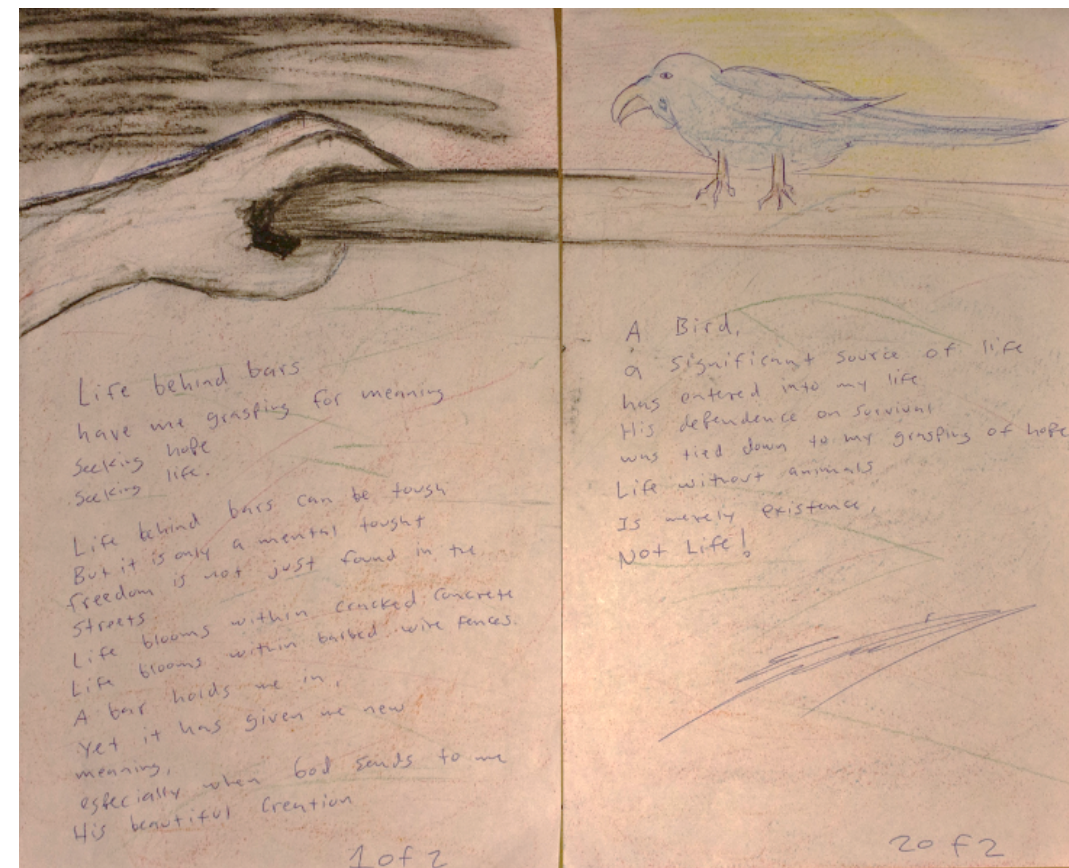 Life behind bars
have me grasping for meaning
Seeking hope
Seeking life.
Life behind bars can be tough
But it is only a mental tought
freedom is not just found in the
streets.
Life blooms within cracked concrete
Life blooms within barbed wire fences.
A bar holds me in,
Yet it has given me new
meaning,
especially when God sends to me
His beautiful Creation
1 of 2
A Bird,
a significant source of life
has entered into my life
His dependence on survival
was tied down to my grasping of hope
Life without animals
Is merely existence,
Not Life!
2 of 2